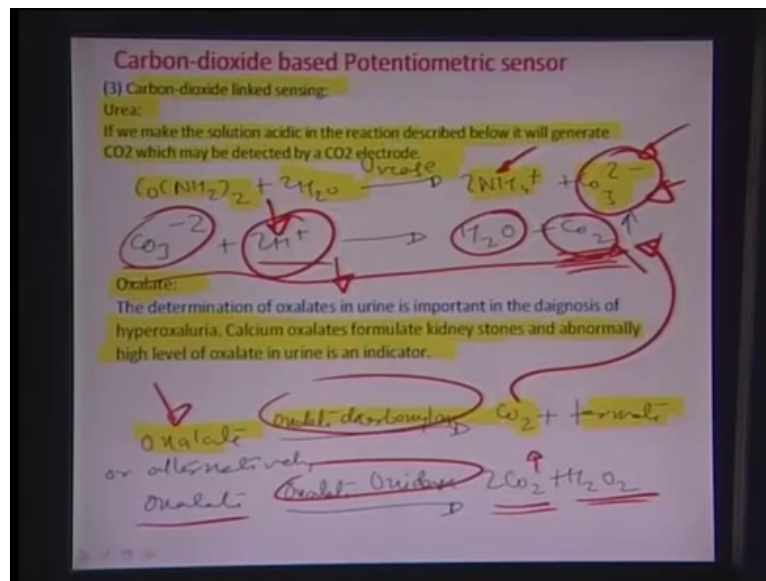 Carbon-dioxide based Potentiometric sensor
(3) Carbon-dioxide linked sensing:
Urea:
If we make the solution acidic in the reaction described below it will generate
CO2 which may be detected by a CO2 electrode.
CO(NH2)2 + 2H2O Urease 2NH4+ + CO3 2-
CO3 -2 + 2H+ → H2O + CO2 ↑
Oxalate:
The determination of oxalates in urine is important in the daignosis of
hyperoxaluria. Calcium oxalates formulate kidney stones and abnormally
high level of oxalate in urine is an indicator.
Oxalate oxalate CO2 + formate
or alternatively
Oxalate Oxalate Oxidase 2CO2 + H2O2